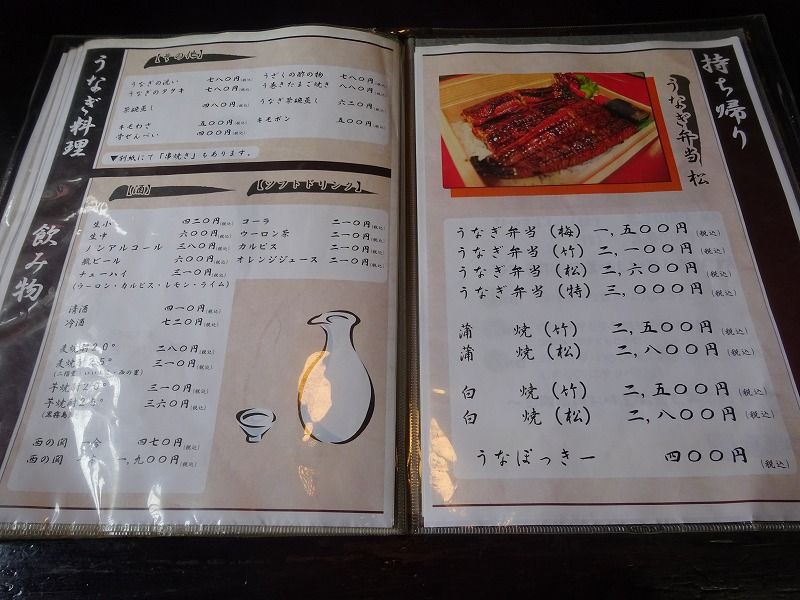 うなぎ料理
【その他】
うなぎの洗い 七八〇円(税込)
うなぎのタタキ 七八〇円(税込)
茶碗蒸し 四八〇円(税込)
キモわさ 五〇〇円(税込)
骨せんべい 四〇〇円(税込)
うざくの酢の物 七八〇円(税込)
う巻きたまご焼き 八八〇円(税込)
うなぎ茶碗蒸し 六二〇円(税込)
キモポン 五〇〇円(税込)
▼別紙にて「串焼き」もあります。
飲み物
【酒】
生小 四二〇円(税込)
生中 六〇〇円(税込)
ノンアルコール 三八〇円(税込)
瓶ビール 六〇〇円(税込)
チューハイ 三一〇円(税込)
(ウーロン・カルピス・レモン・ライム)
清酒 四一〇円(税込)
冷酒 七二〇円(税込)
麦焼酎20° 二八〇円(税込)
麦焼酎25° 三一〇円(税込)
芋焼酎20° 三一〇円(税込)
芋焼酎25° 三六〇円(税込)
西の関 一合 四七〇円(税込)
西の関 一、九〇〇円(税込)
【ソフトドリンク】
コーラ 二一〇円(税込)
ウーロン茶 二一〇円(税込)
カルピス 二一〇円(税込)
オレンジジュース 二一〇円(税込)
持ち帰り
うなぎ弁当 松
うなぎ弁当(梅) 一,五〇〇円(税込)
うなぎ弁当(竹) 二,一〇〇円(税込)
うなぎ弁当(松) 二,六〇〇円(税込)
うなぎ弁当(特) 三,〇〇〇円(税込)
蒲 焼(竹) 二,五〇〇円(税込)
蒲 焼(松) 二,八〇〇円(税込)
白 焼(竹) 二,五〇〇円(税込)
白 焼(松) 二,八〇〇円(税込)
うなぼっきー 四〇〇円(税込)